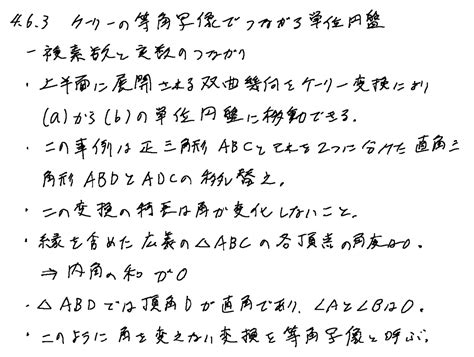 4.6.3 ケーリーの等角写像でつながる単位円盤
－複素数と実数のつながり
・上半面に展開される双曲幾何をケーリー変換により
(a)から(b)の単位円盤に移動できる.
・この事例は正三角形ABCとそれを2つに分けた直角三
角形ABDとADCの移し替え.
・この変換の特長は角が変化しないこと.
・縁を含めた広義の△ABCの各頂点の角度は0.
⇒内角の和が0
・△ABDでは頂角Dが直角であり、∠Aと∠Bは0.
・このように角を変えない変換を等角写像と呼ぶ.